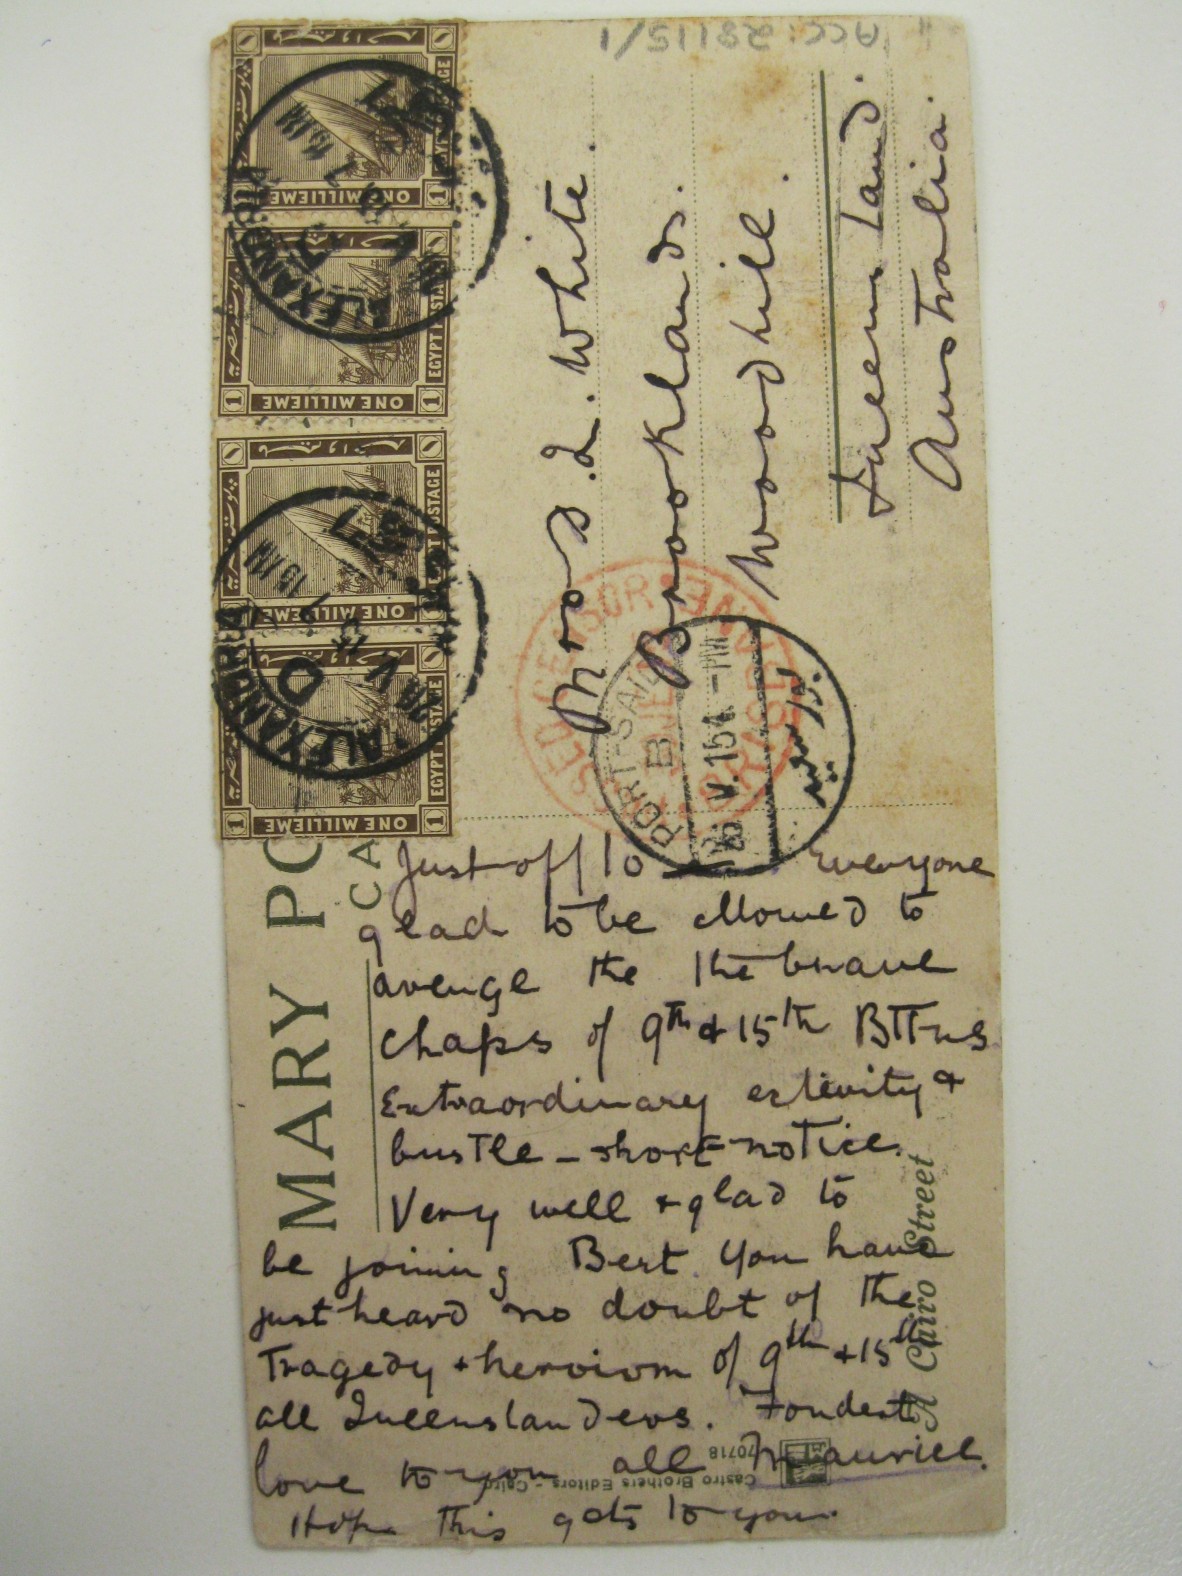 Acc: 28115/1
EGYPT POSTAGE
ONE MILLIEME
1
1
EGYPT POSTAGE
ONE MILLIEME
1
1
EGYPT POSTAGE
ONE MILLIEME
1
1
EGYPT POSTAGE
ONE MILLIEME
1
1
ALEXANDRIA
ALEXANDRIA
D
Mrs. L. White.
Brooklands.
Woodhill.
Queensland.
Australia.
PORT-SAID
B
V. 15 4 - PM
MARY PO
CA
Just off to Everyone
glad to be allowed to
avenge the the brave
chaps of 9th + 15th BTTns
Extraordinary activity +
bustle – short notice.
Very well + glad to
be joining Bert. You have
just heard no doubt of the
Tragedy + heroism of 9th + 15th
all Queenslanders. Fondest
love to you all Mauriel.
Hope this gets to you.
A Cairo Street
Castro Brothers Editors - Cairo
70718